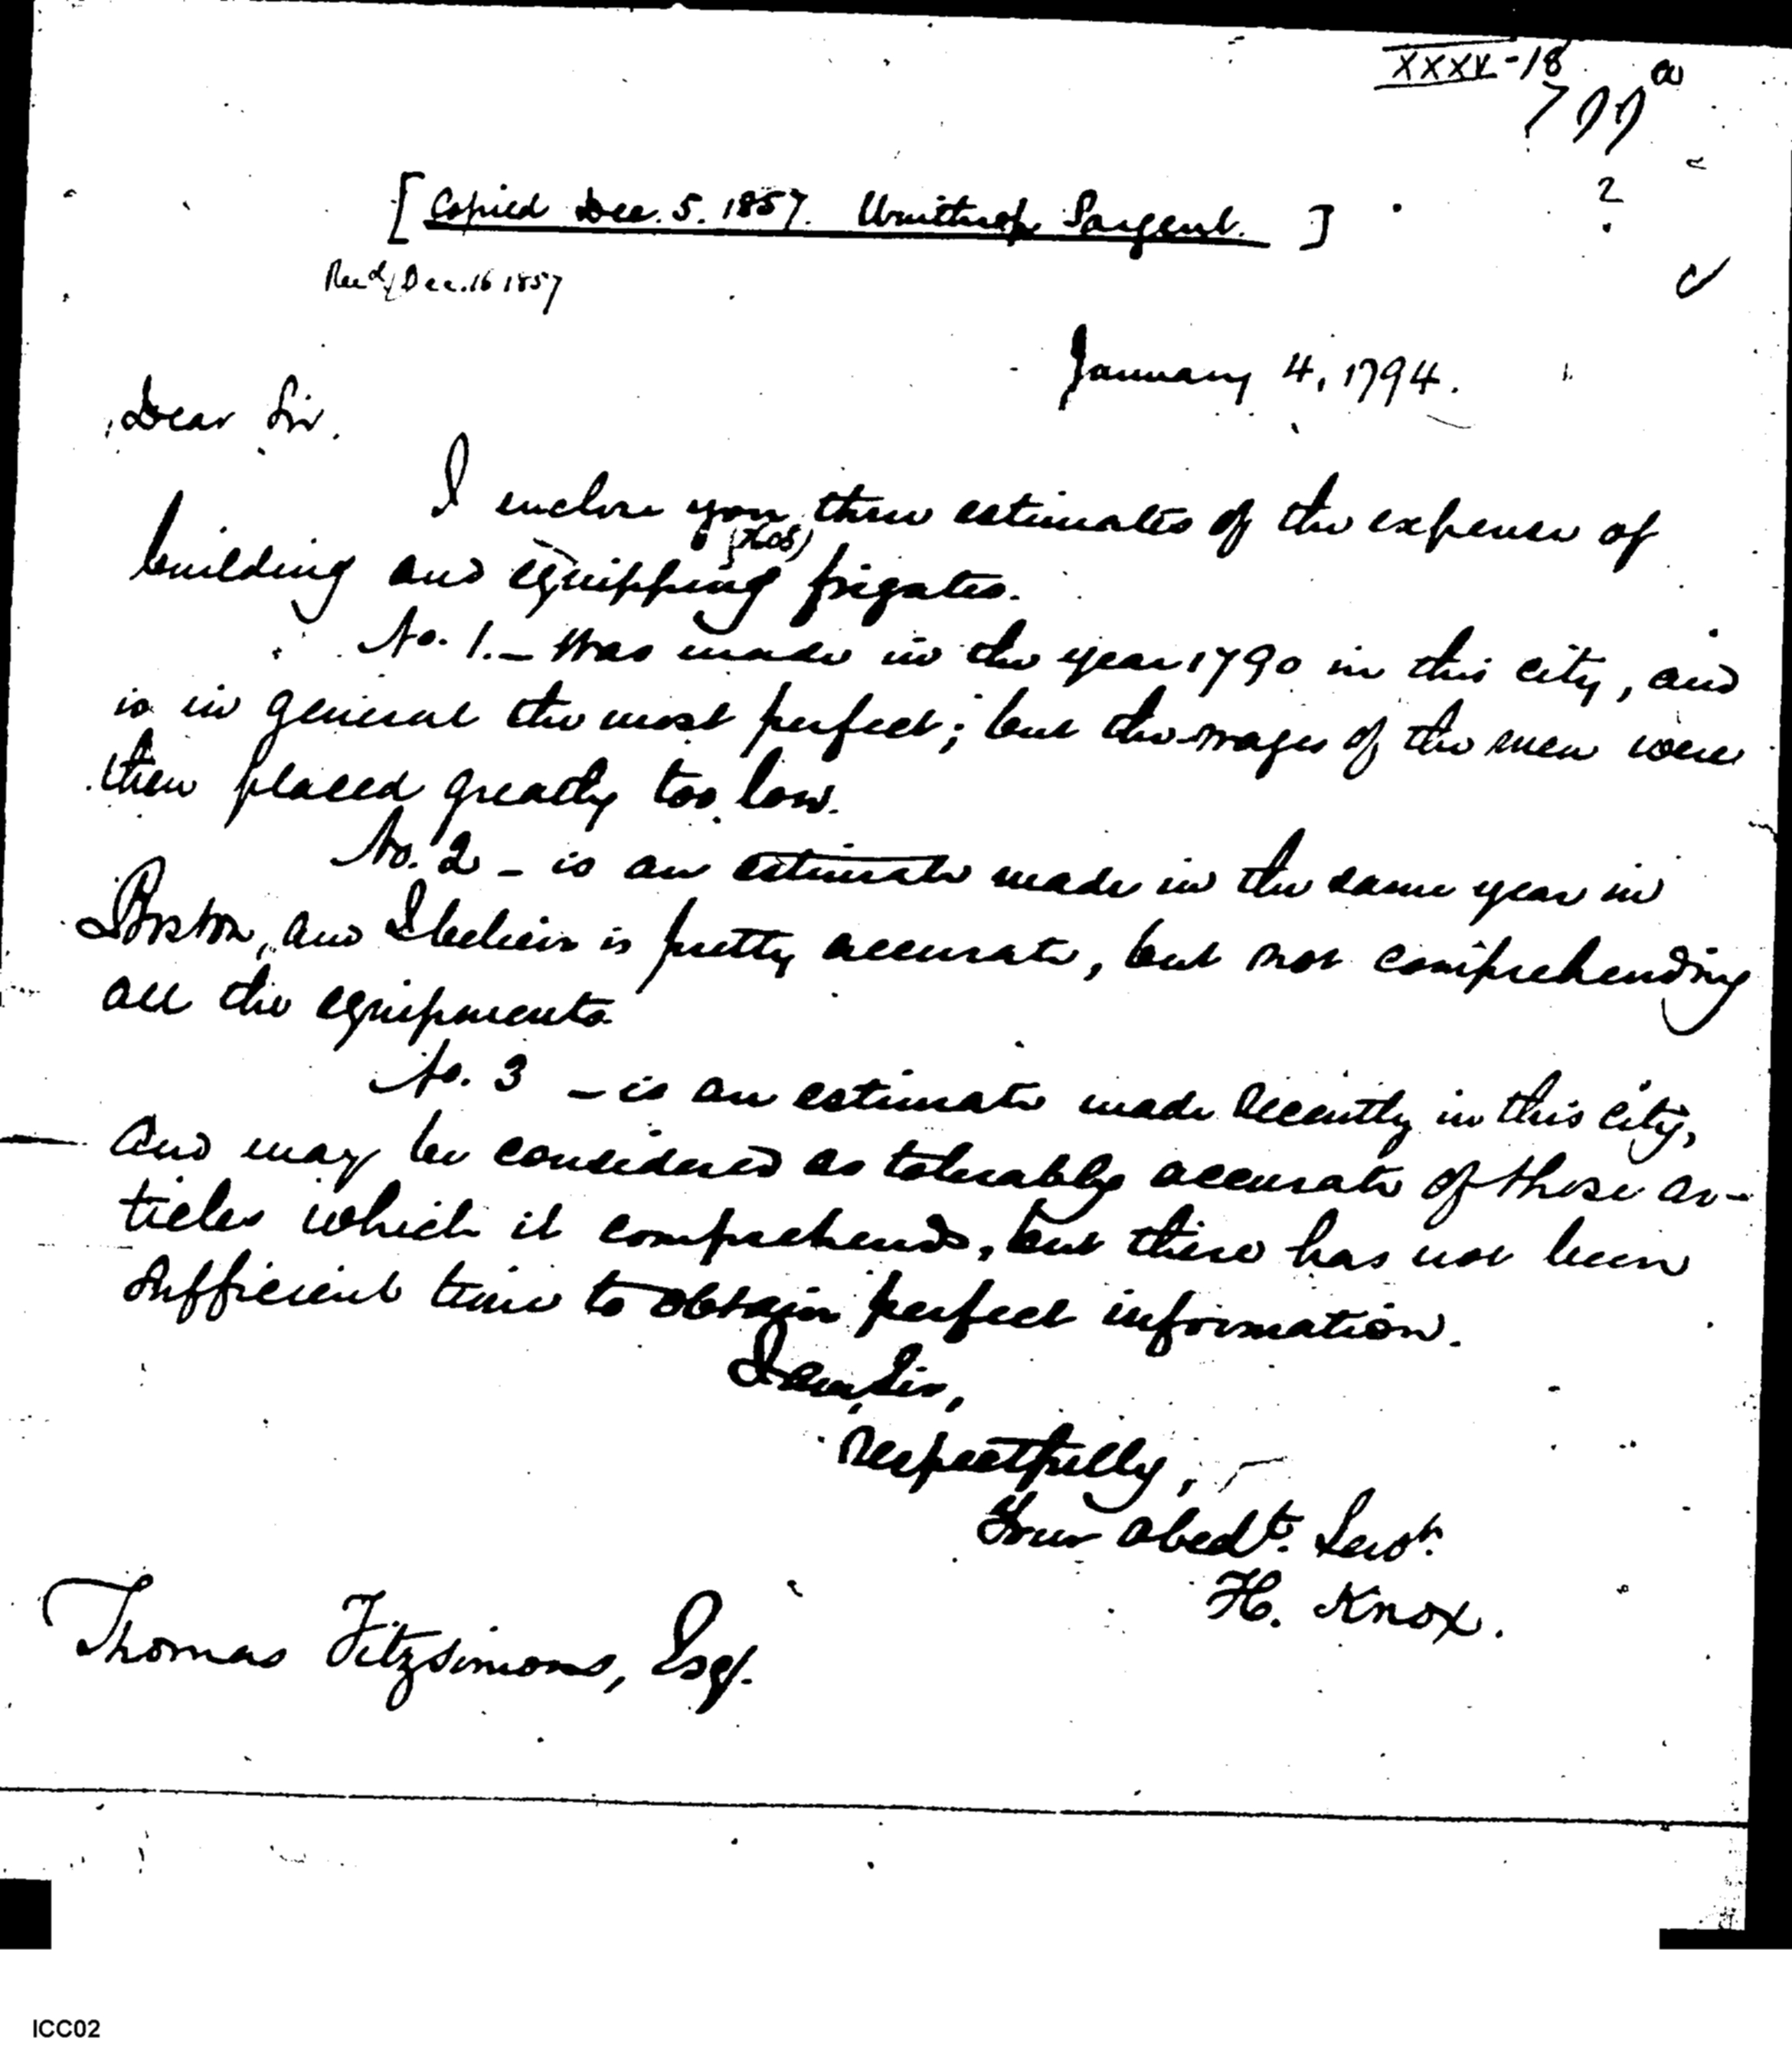 XXXV-18 a
799
?
[Copied Dec. 5. 1857. Winthrop Sargent.]
Recd Dec. 16 1857
January 4, 1794.
Dear Sir.
I enclose you three estimates of the expense of
building and equipping frigates.
No. 1. - Was made in the year 1790 in this city, and
is in general the most perfect; but the wages of the men were
then placed greatly too low.
No. 2 - is an estimate made in the same year in
Boston, and I believe is pretty accurate, but not comprehending
all the equipments
No. 3 - is an estimate made recently in this city,
and may be considered as tolerably accurate of those ar-
ticles which it comprehends, but there has not been
sufficient time to obtain perfect information.
I am Sir,
Respectfully,
Your obedt. Servt.
H. Knox.
Thomas Fitzsimons, Esq.
ICC02